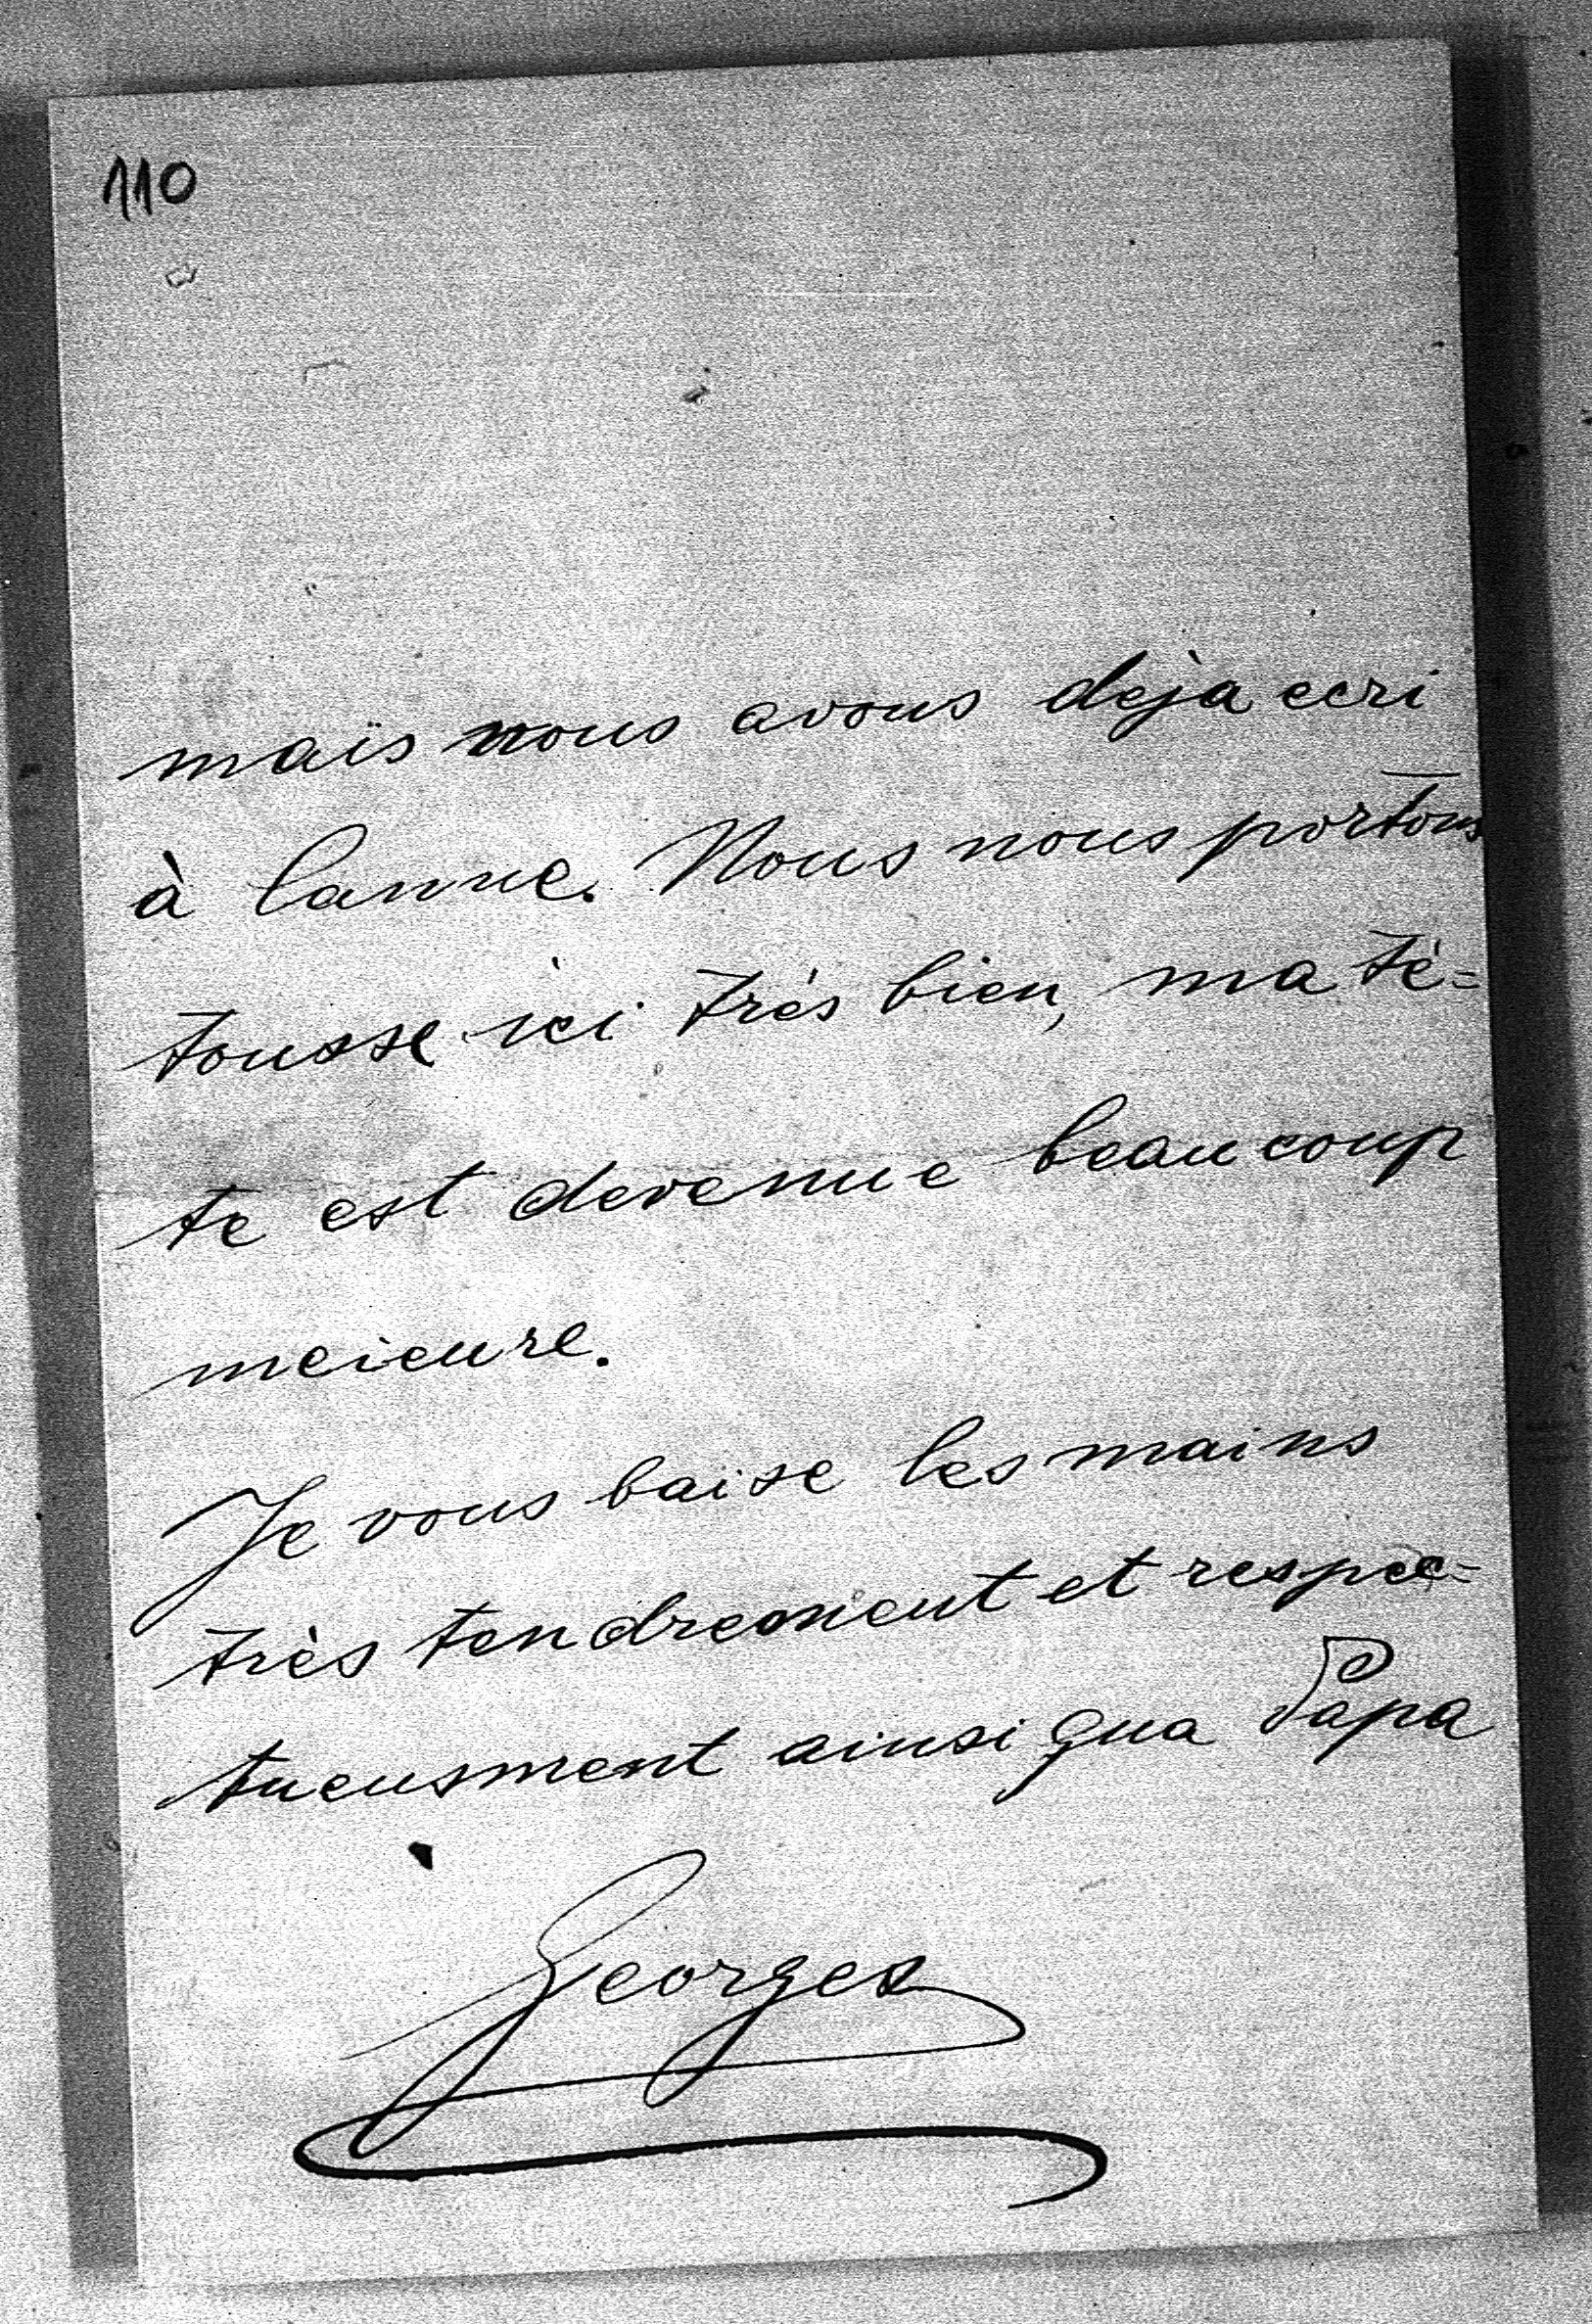 110
maïs nous avons dejà ecri
à Canne. Nous nous portons
tousse ici très bien, ma tê=
te est devenue beaucoup
meieure.
Je vous baise les mains
très tendrement et respec=
tueusment ainsi qua Papa
Georges